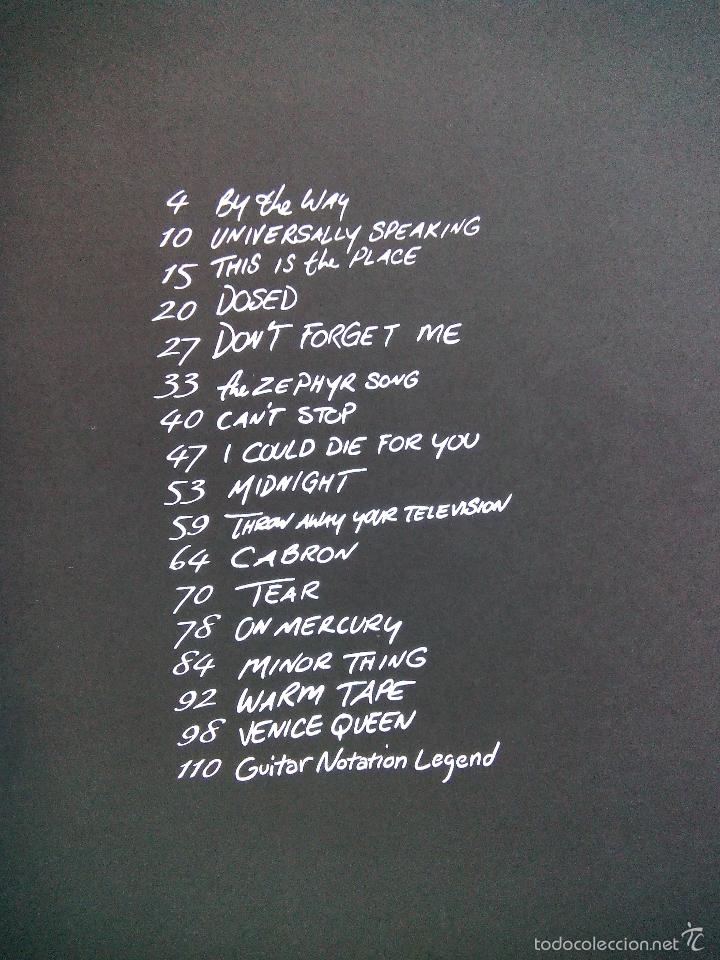 4 By the Way
10 UNIVERSALLY SPEAKING
15 THIS IS the PLACE
20 DOSED
27 DON'T FORGET ME
33 the ZEPHYR SONG
40 CAN'T STOP
47 I COULD DIE FOR YOU
53 MIDNIGHT
59 THROW AWAY YOUR TELEVISION
64 CABRON
70 TEAR
78 ON MERCURY
84 MINOR THING
92 WARM TAPE
98 VENICE QUEEN
110 Guitar Notation Legend
todocoleccion.net tc